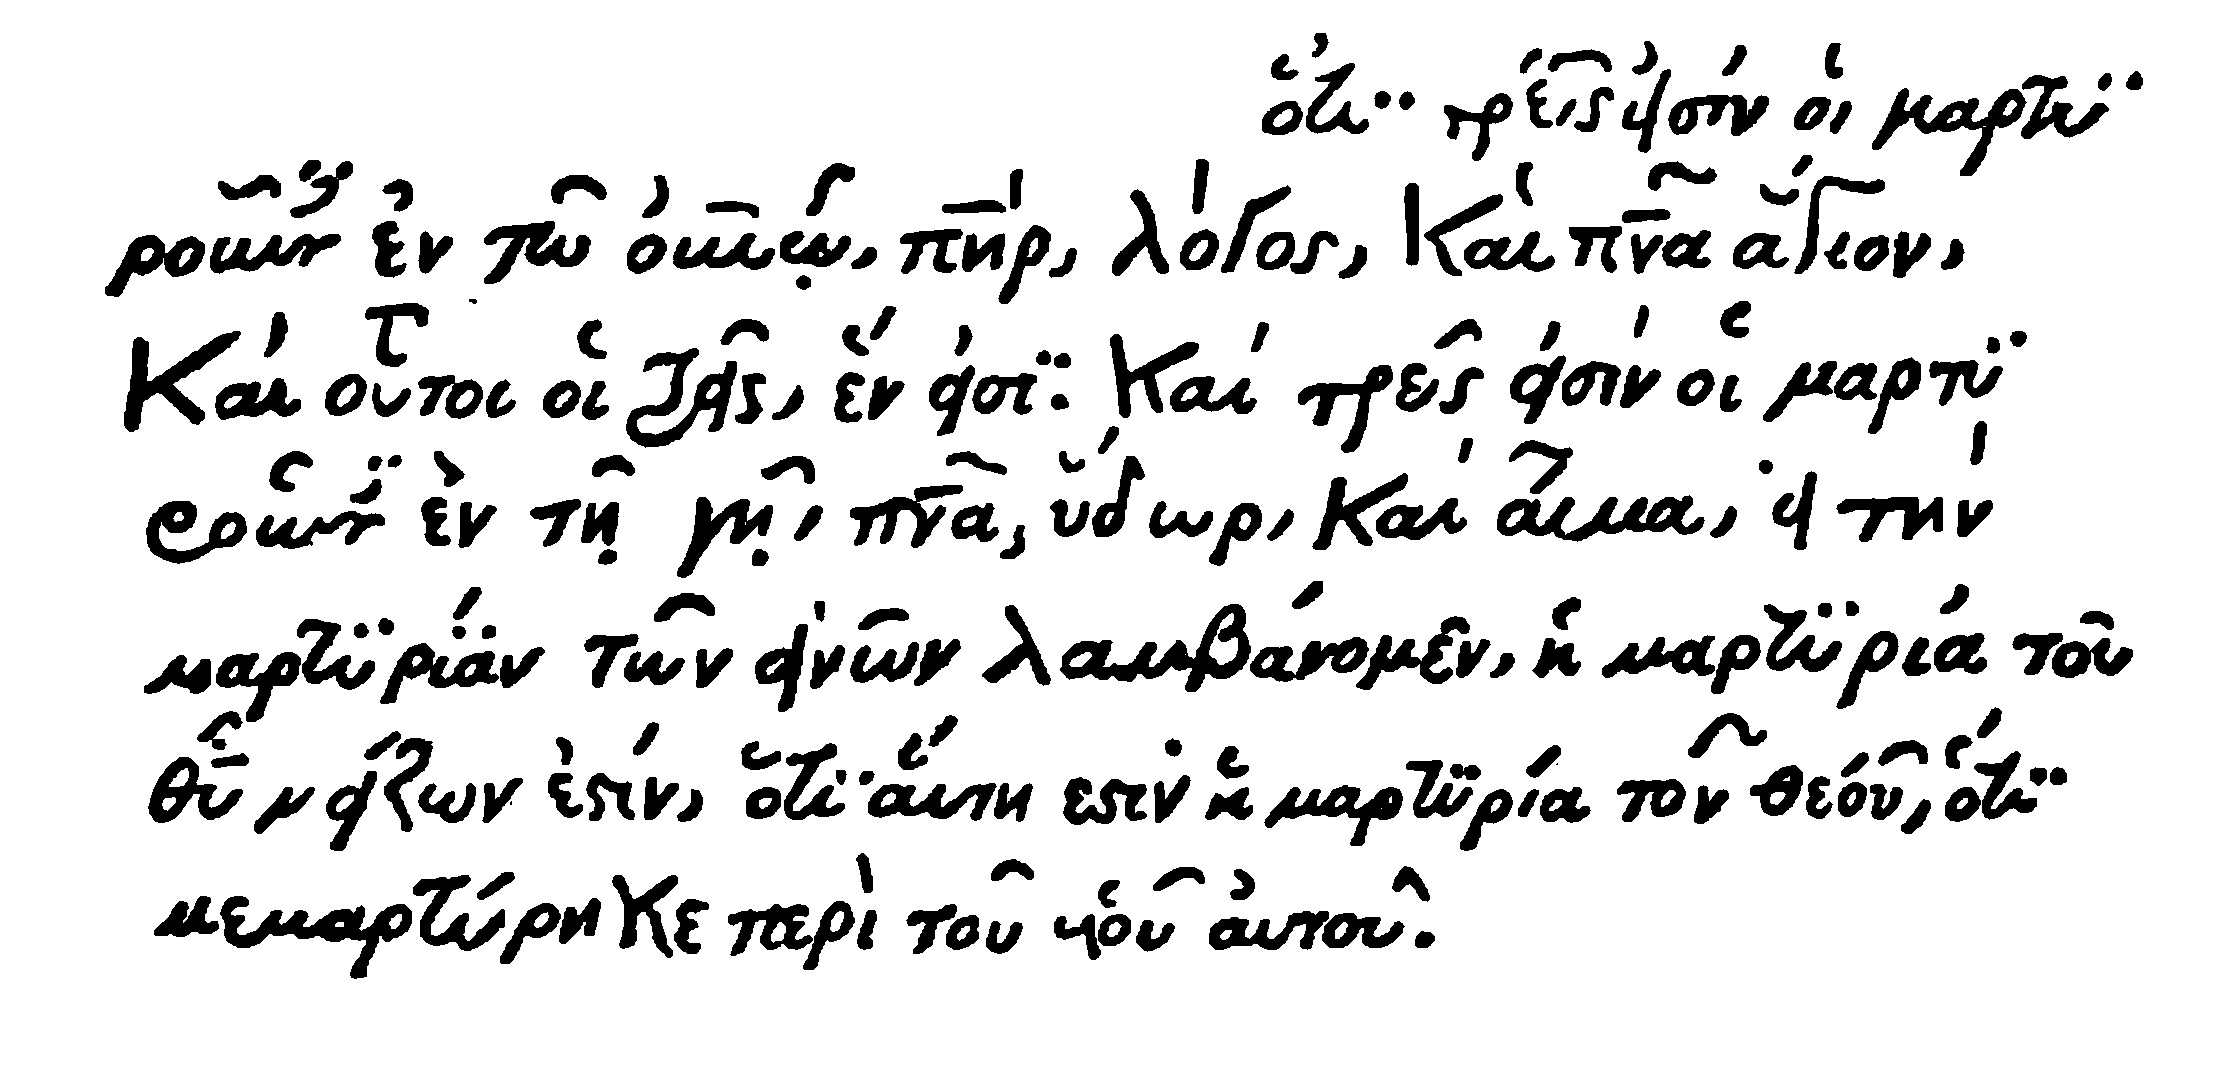 ὅτϊ τρεῖς εἰσίν οἱ μαρτϋ
ροῦντ ἐν τῶ οὐνῷ, πη̅ρ, λόγος, Καὶ πν̅α ἅγιον,
Καὶ οὗτοι οἱ τρεῖς, ἕν εἰσϊ: Καὶ τρεῖς εἰσίν οἱ μαρτϋ
ροῦντ ἐν τῇ γῇ, πν̅α, ὕδωρ, Καὶ αἷμα, εἰ τὴν
μαρτϋρίαν τῶν ἀνῶν λαμβάνομεν, ἡ μαρτϋρία τοῦ
θ̅υ μείζων ἐστίν, ὅτϊ αὕτη εστιν ἡ μαρτϋρία τοῦ θεοῦ, ὅτϊ
μεμαρτύρηΚε περὶ τοῦ υἱοῦ ἀυτοῦ.